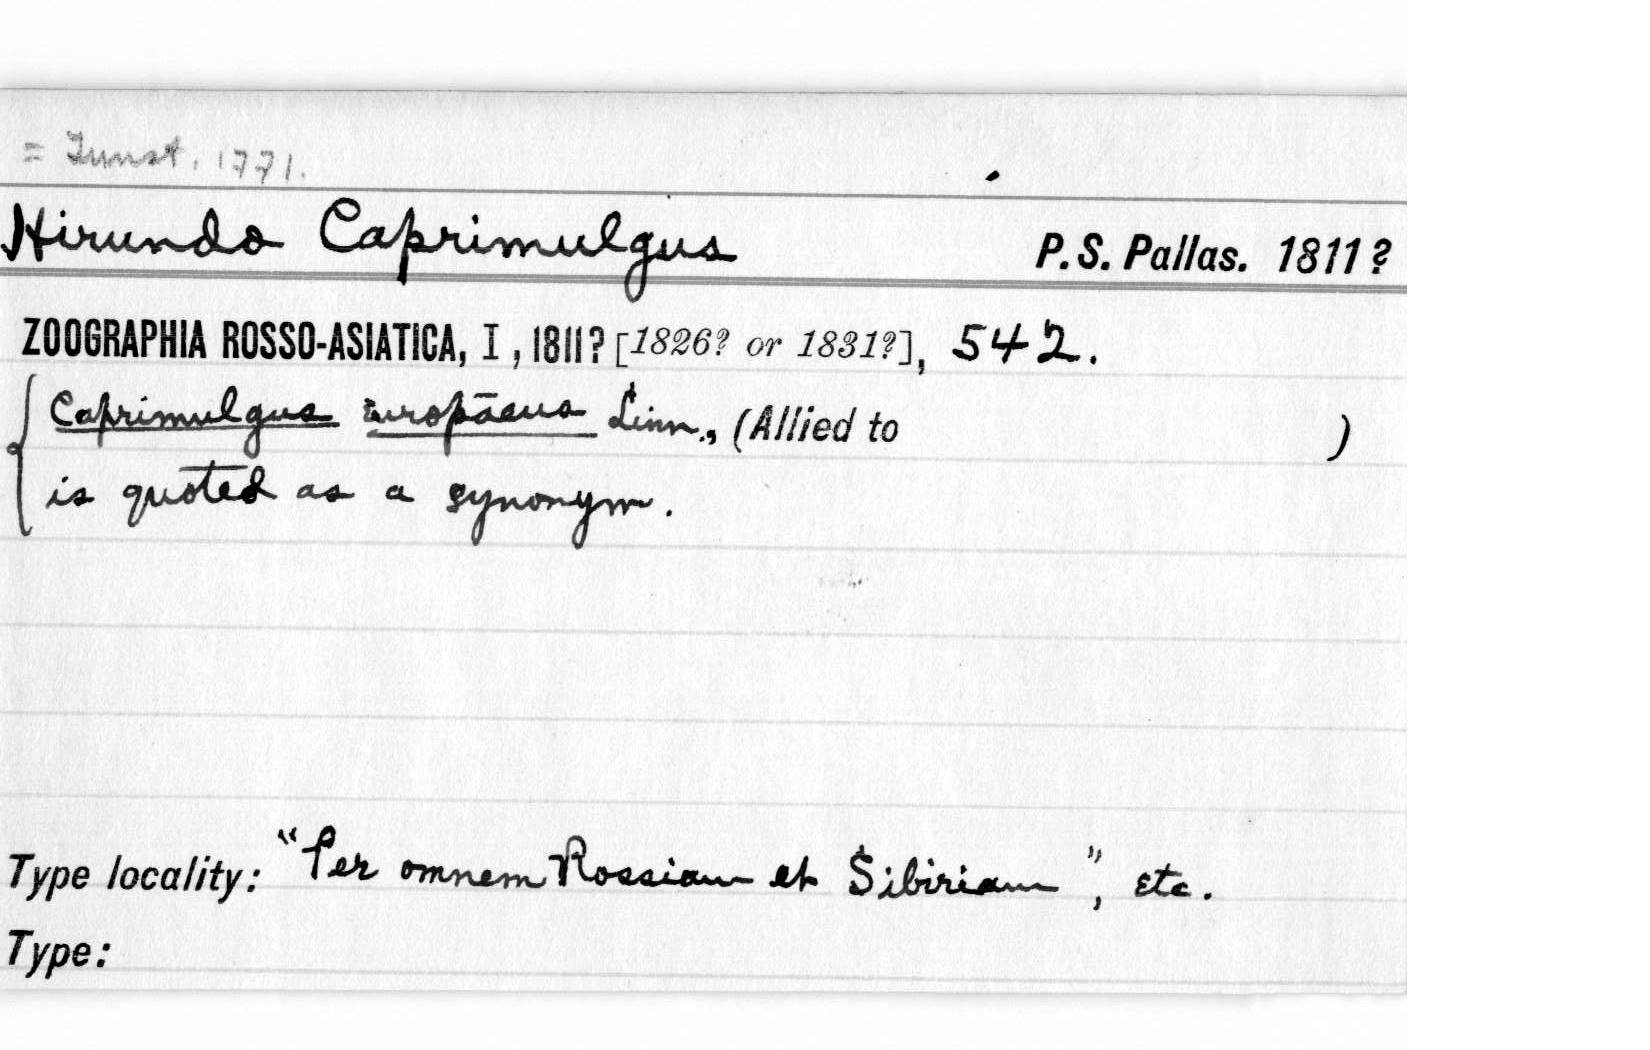 = Tunst. 1771.
Hirundo Caprimulgus P.S. Pallas. 1811?
ZOOGRAPHIA ROSSO-ASIATICA, I, 1811? [1826? or 1831?], 542.
Caprimulgus europāeus Linn., (Allied to )
is quoted as a synonym.
Type locality: "Per omnem Rossiam et Sibiriam", etc.
Type: